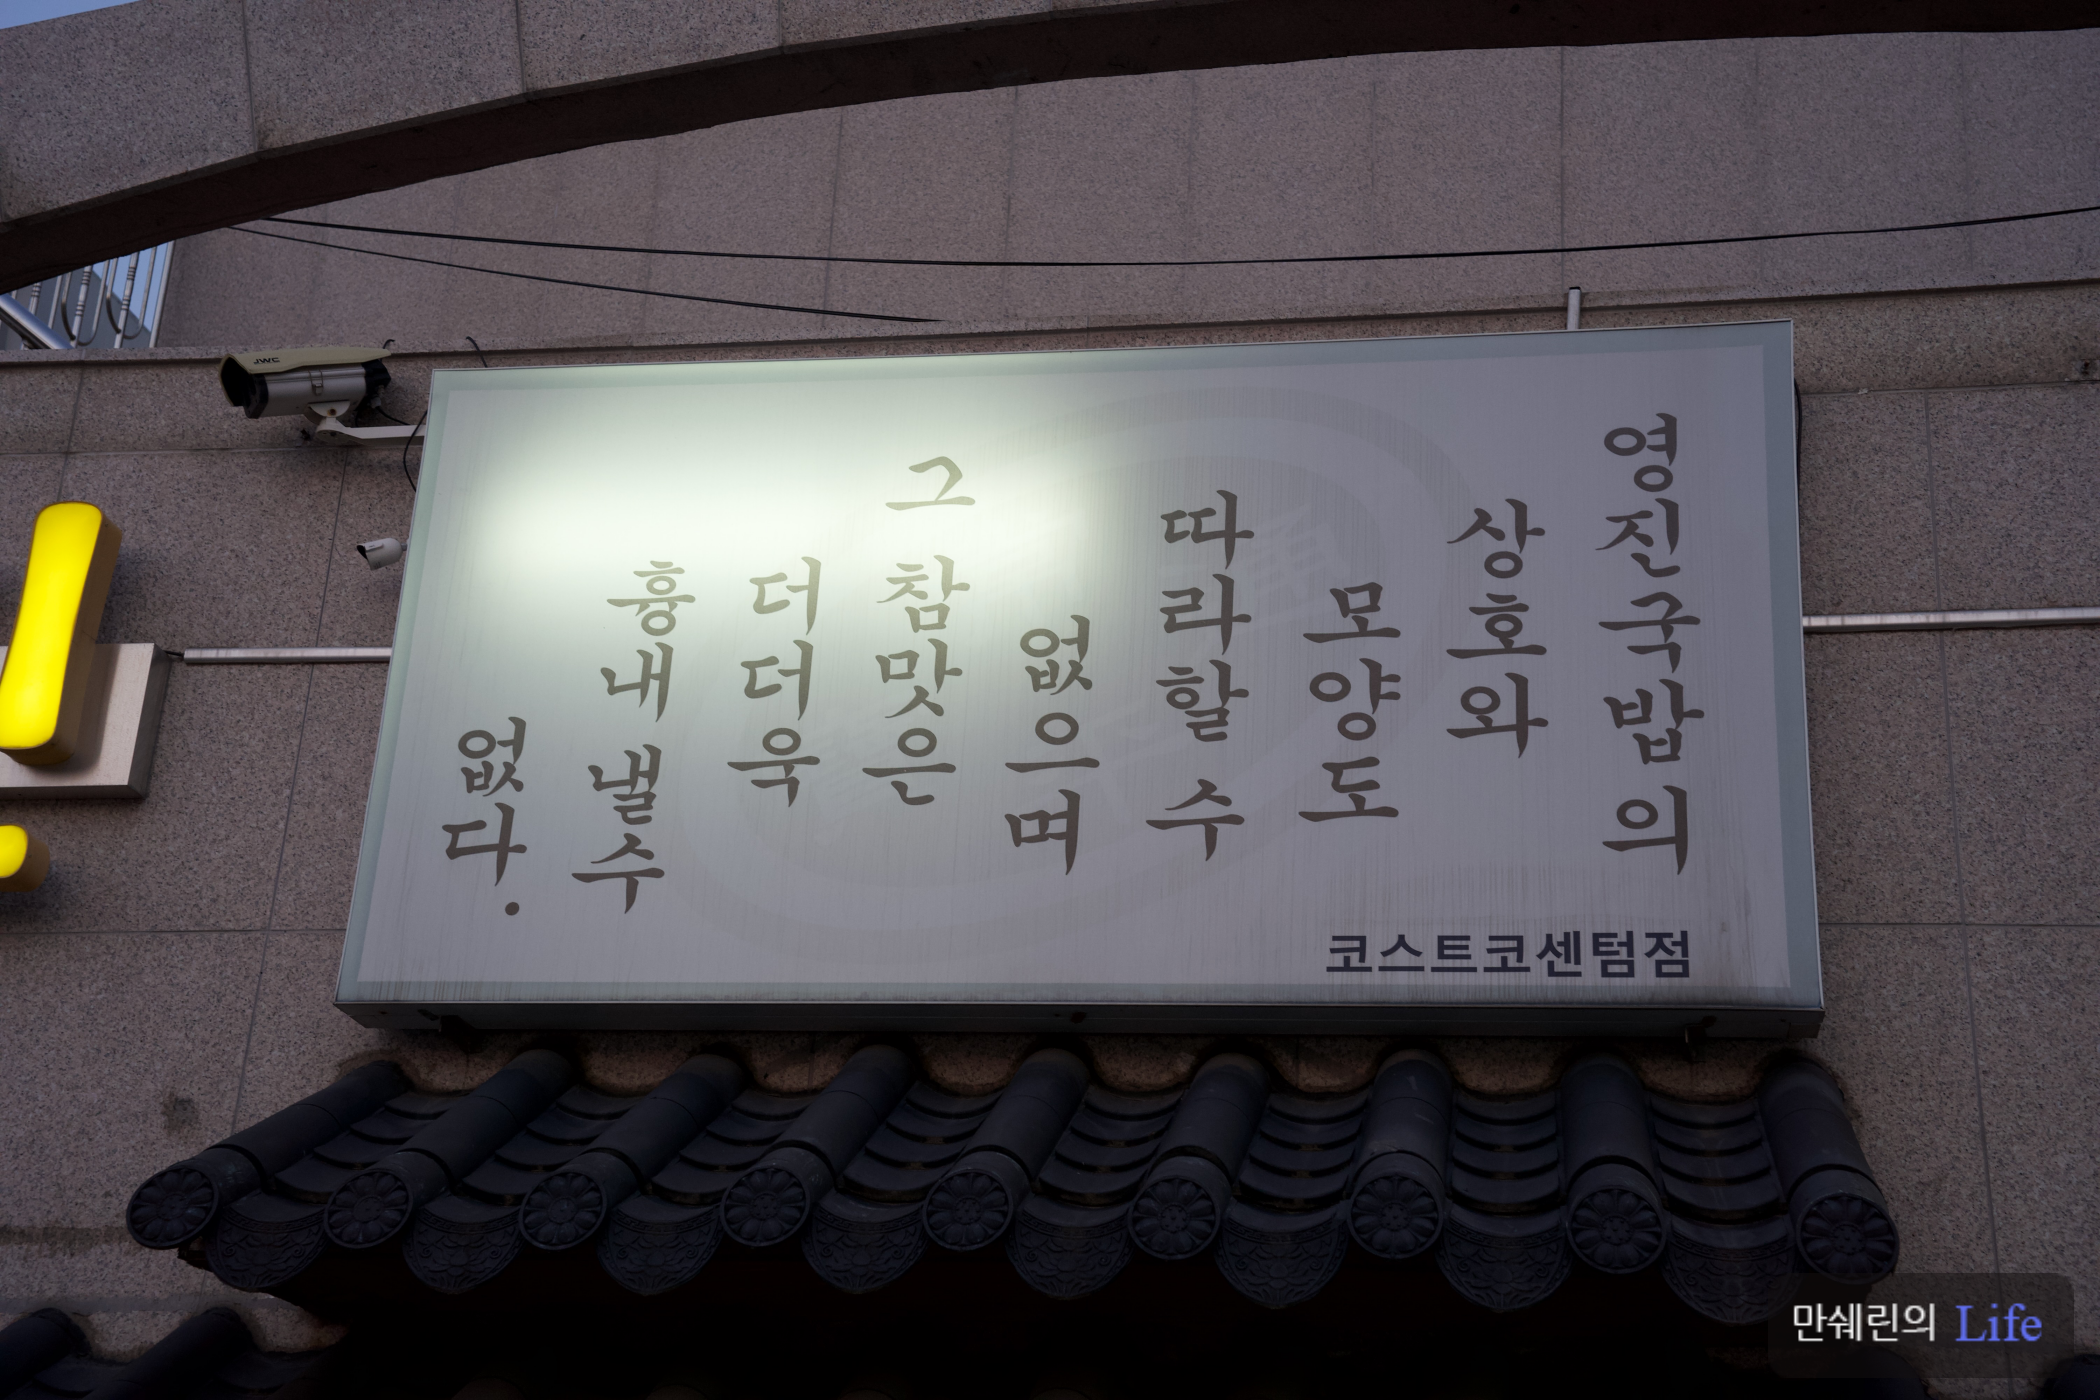 영진국밥의
상호와
모양도
따라할 수
없으며
그 참맛은
더더욱
흉내 낼수
없다.
코스트코센텀점
JWC
만쉐린의 Life